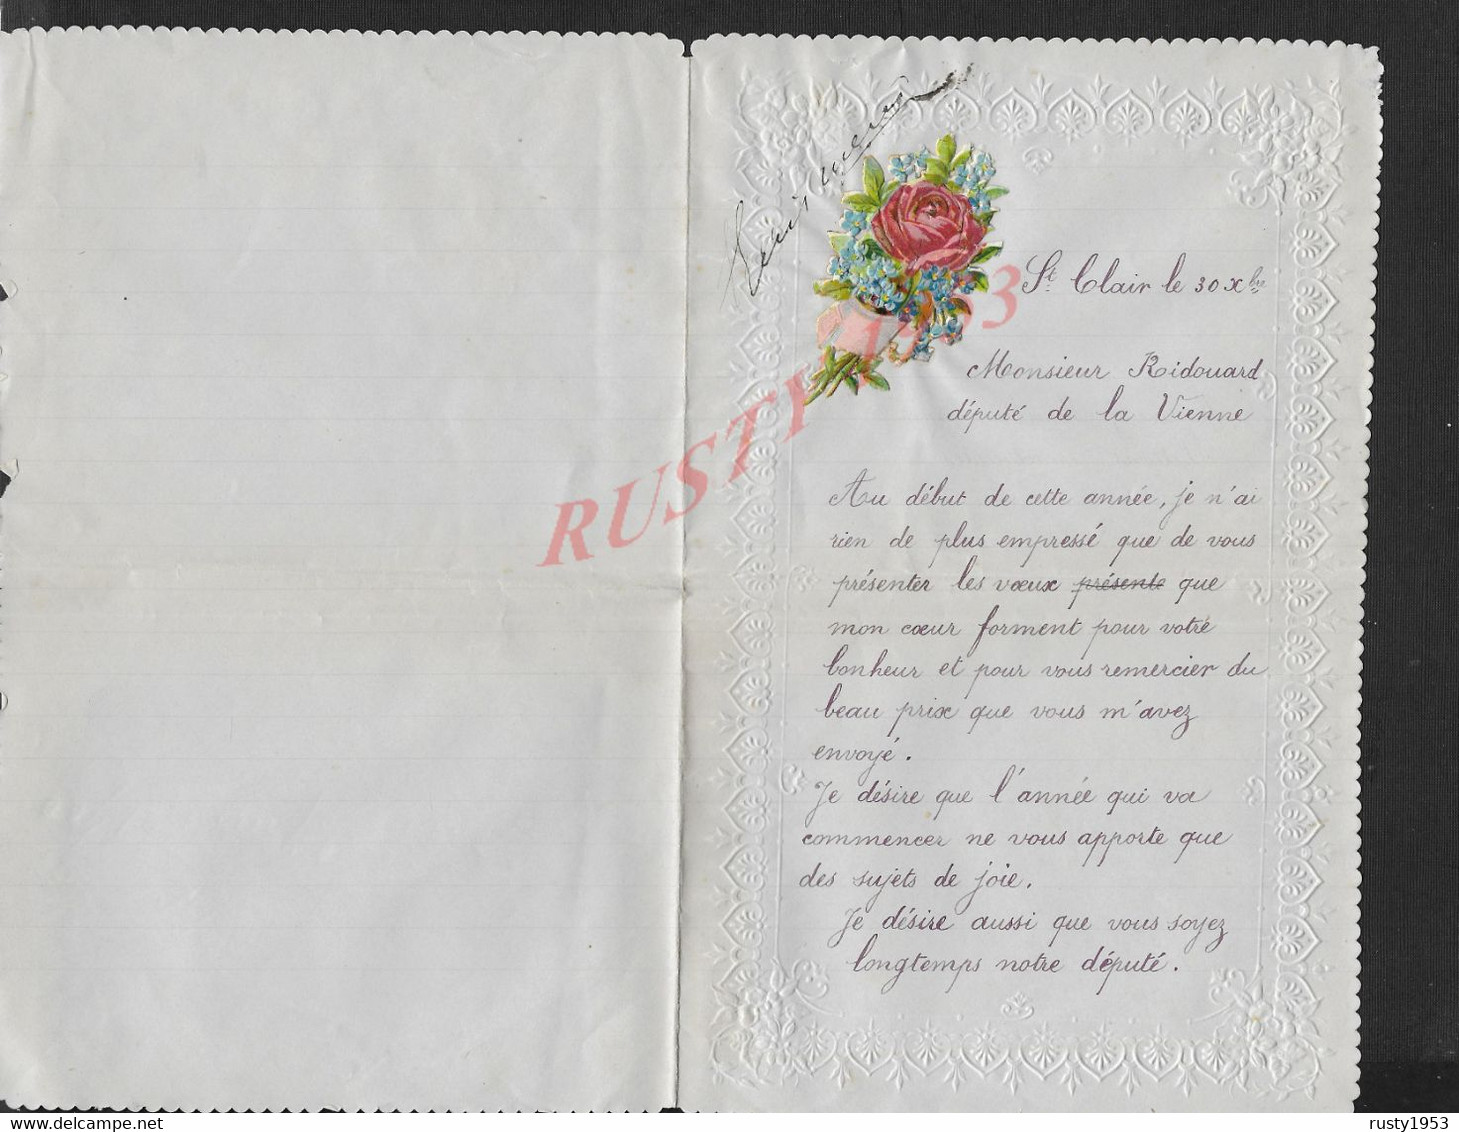 St. Clair le 30 Xbre
Monsieur Ridouard
député de la Vienne
Au début de cette année, je n'ai
rien de plus empressé que de vous
présenter les vœux présente que
mon cœur forment pour votre
bonheur et pour vous remercier du
beau prix que vous m'avez
envoyé.
Je désire que l'année qui va
commencer ne vous apporte que
des sujets de joie.
Je désire aussi que vous soyez
longtemps notre député.
RUSTY 1953
rusty1953